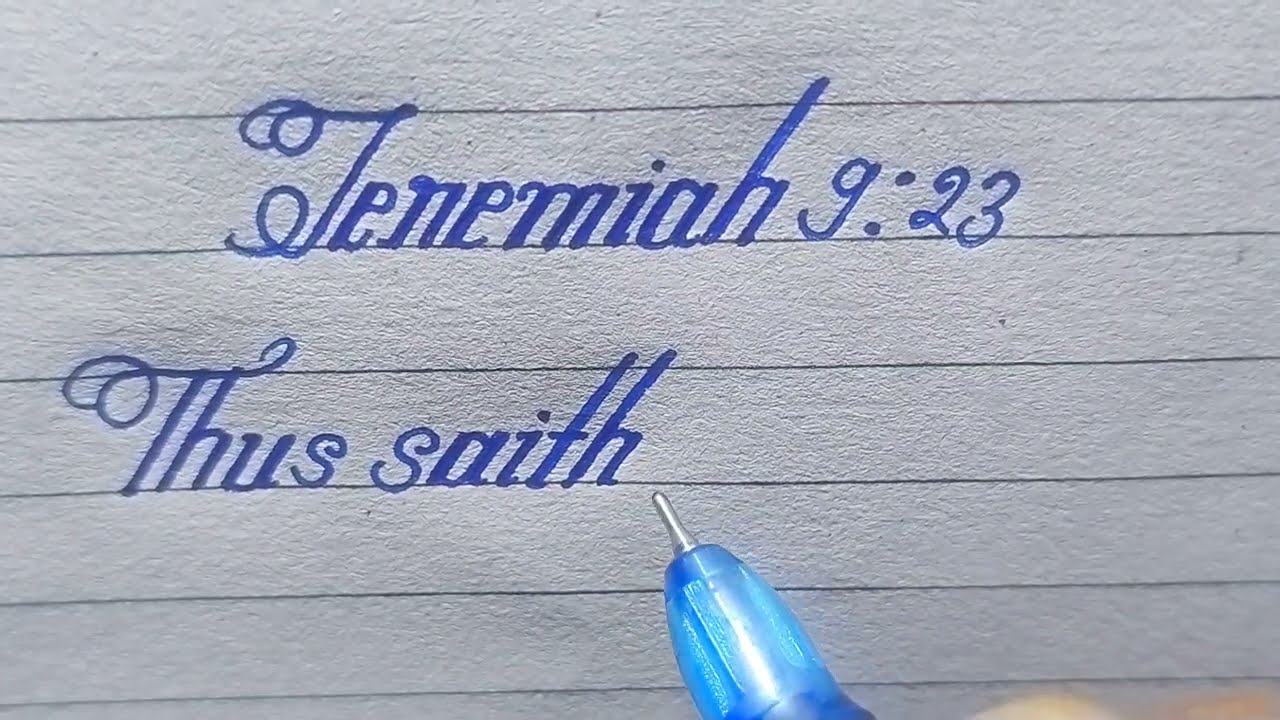 Jeremiah 9:23
Thus saith